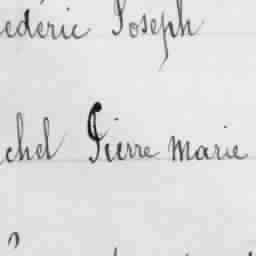 ederic Joseph
chel Pierre Marie